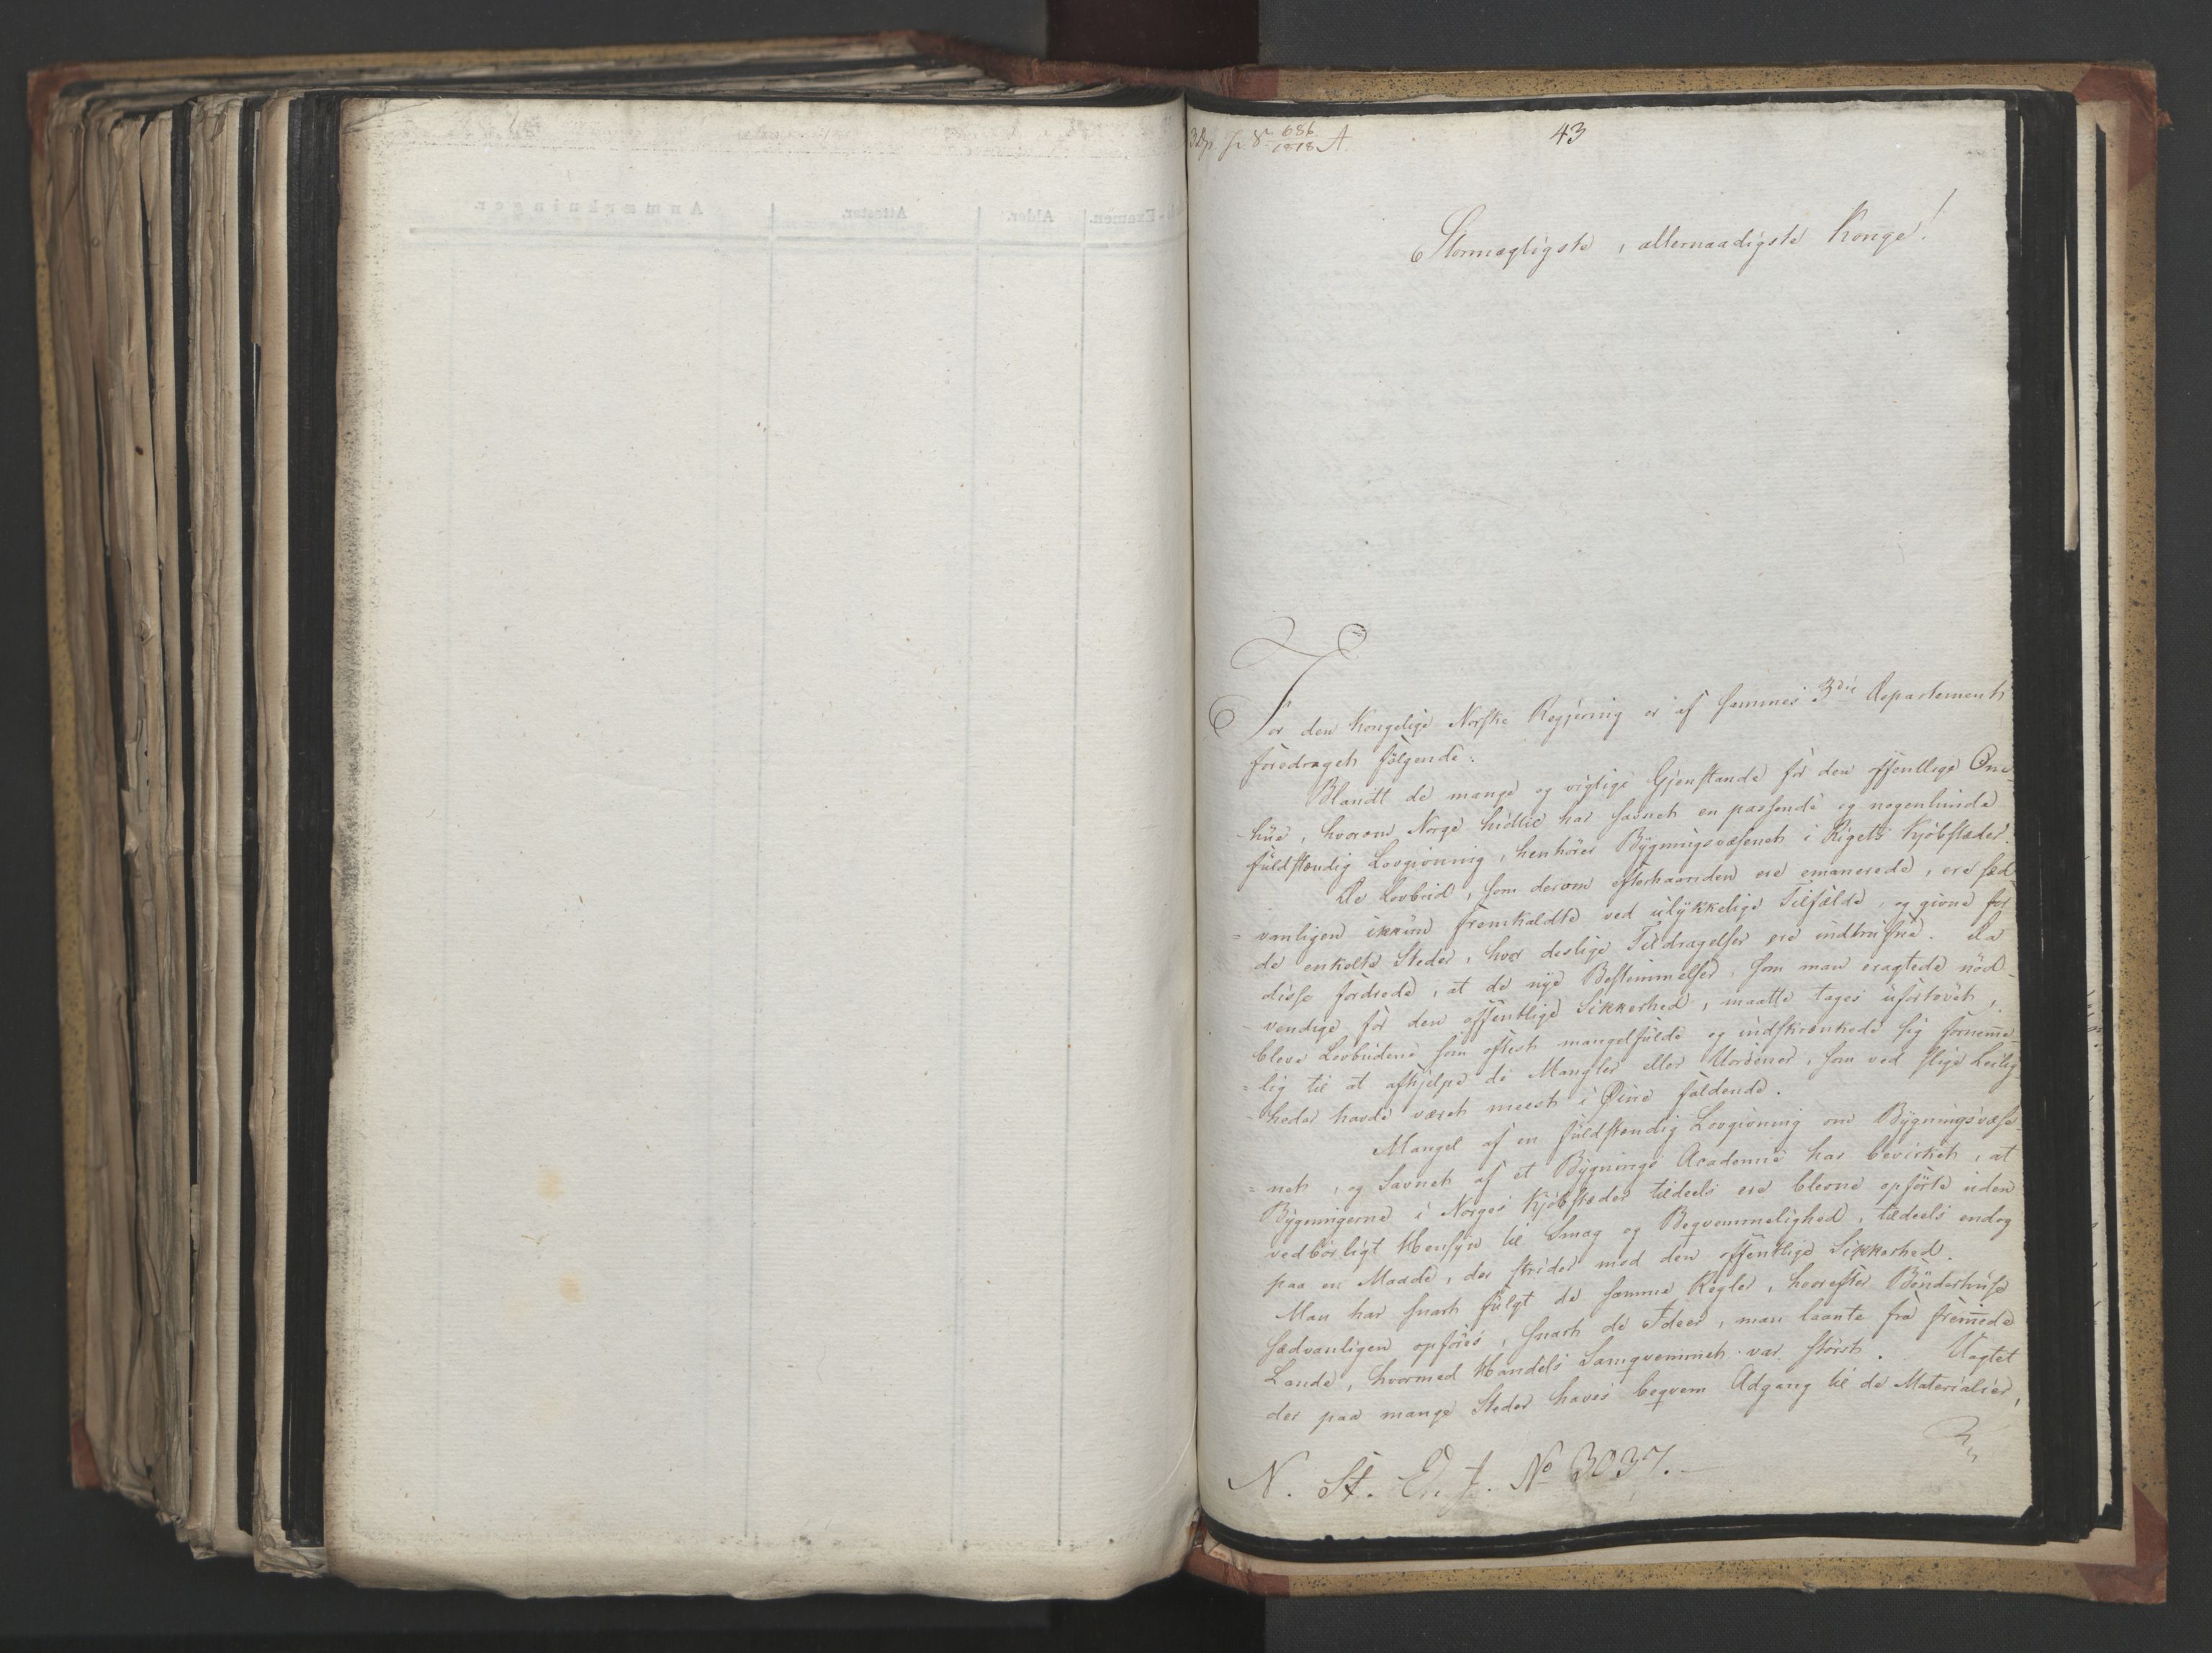 43
686
1818 A.
Stormægtigste, allernaadigste Konge!
For den Kongelige Norske Regjering er af sammes 3die Departement
foredraget følgende:
Blandt de mange og vigtige Gjenstande for den offentlige Om-
hue, hvorom Norge hidtil har savnet en passende og nogenlunde
fuldstændig Lovgivning, henhører Bygningsvæsenet i Rigets Kjøbstæder.
De Lovbud, som derom efterhaanden ere emanerede, ere sæd-
vanligen ikkun fremkaldte ved ulykkelige Tilfælde, og givne for
de enkelte Steder, hvor deslige Tildragelser ere indtrufne. Da
disse fordrede, at de nye Bestemmelser, som man eragtede nød-
vendige for den offentlige Sikkerhed, maatte tages ufortøvet,
bleve Lovbudene som oftest mangelfulde og indskrænkede sig fornemme-
lig til at afhjelpe de Mangler eller Uordener, som ved slige Leilig-
heder havde været meest i Øine faldende.
Mangel af en fuldstændig Lovgivning om Bygningsvæse-
net, og Savnet af et Bygnings Academie har bevirket, at
Bygningerne i Norges Kjøbstæder tildeels ere blevne opførte uden
vedbørligt Hensyn til Smag og Beqvemmelighed, tildeels endog
paa en Maade, der strider mod den offentlige Sikkerhed.
Man har snart fulgt de samme Regler, hvorefter Bønderhuse
sædvanligen opføres, snart de Ideer, man laante fra fremmede
Lande, hvormed Handels Samqvemmet var størst. Uagtet
der paa mange Steder haves beqvem Adgang til de Materialier,
N. St. E. J. No 3037.